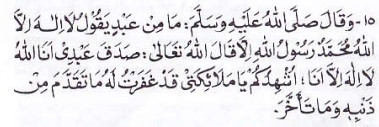 ١٥- وَقَالَ صَلَّى اللهُ عَلَيْهِ وَسَلَّمَ: مَا مِنْ عَبْدٍ يَقُوْلُ لاَ اِلهَ اِلاَّ
اللهُ مُحَمَّدٌ رَسُوْلُ اللهِ اِلاَّ قَالَ اللهُ تَعَالَى: صَدَقَ عَبْدِىْ اَنَا اللهُ
لاَ اِلهَ اِلاَّ اَنَا؛ اُشْهِدُكُمْ يَا مَلاَئِكَتِىْ قَدْ غَفَرْتُ لَهُ مَا تَقَدَّمَ مِنْ
ذَنْبِهِ وَمَا تَأَخَّرَ.